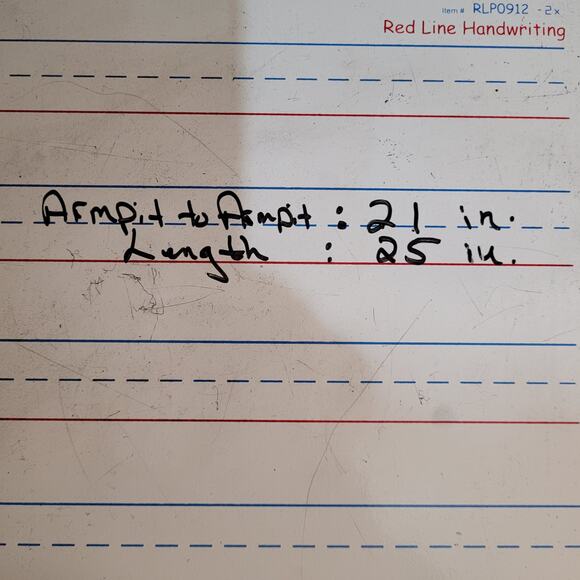 Item # RLP0912 -2x
Red Line Handwriting
Armpit to Armpit : 21 in.
Length : 25 in.